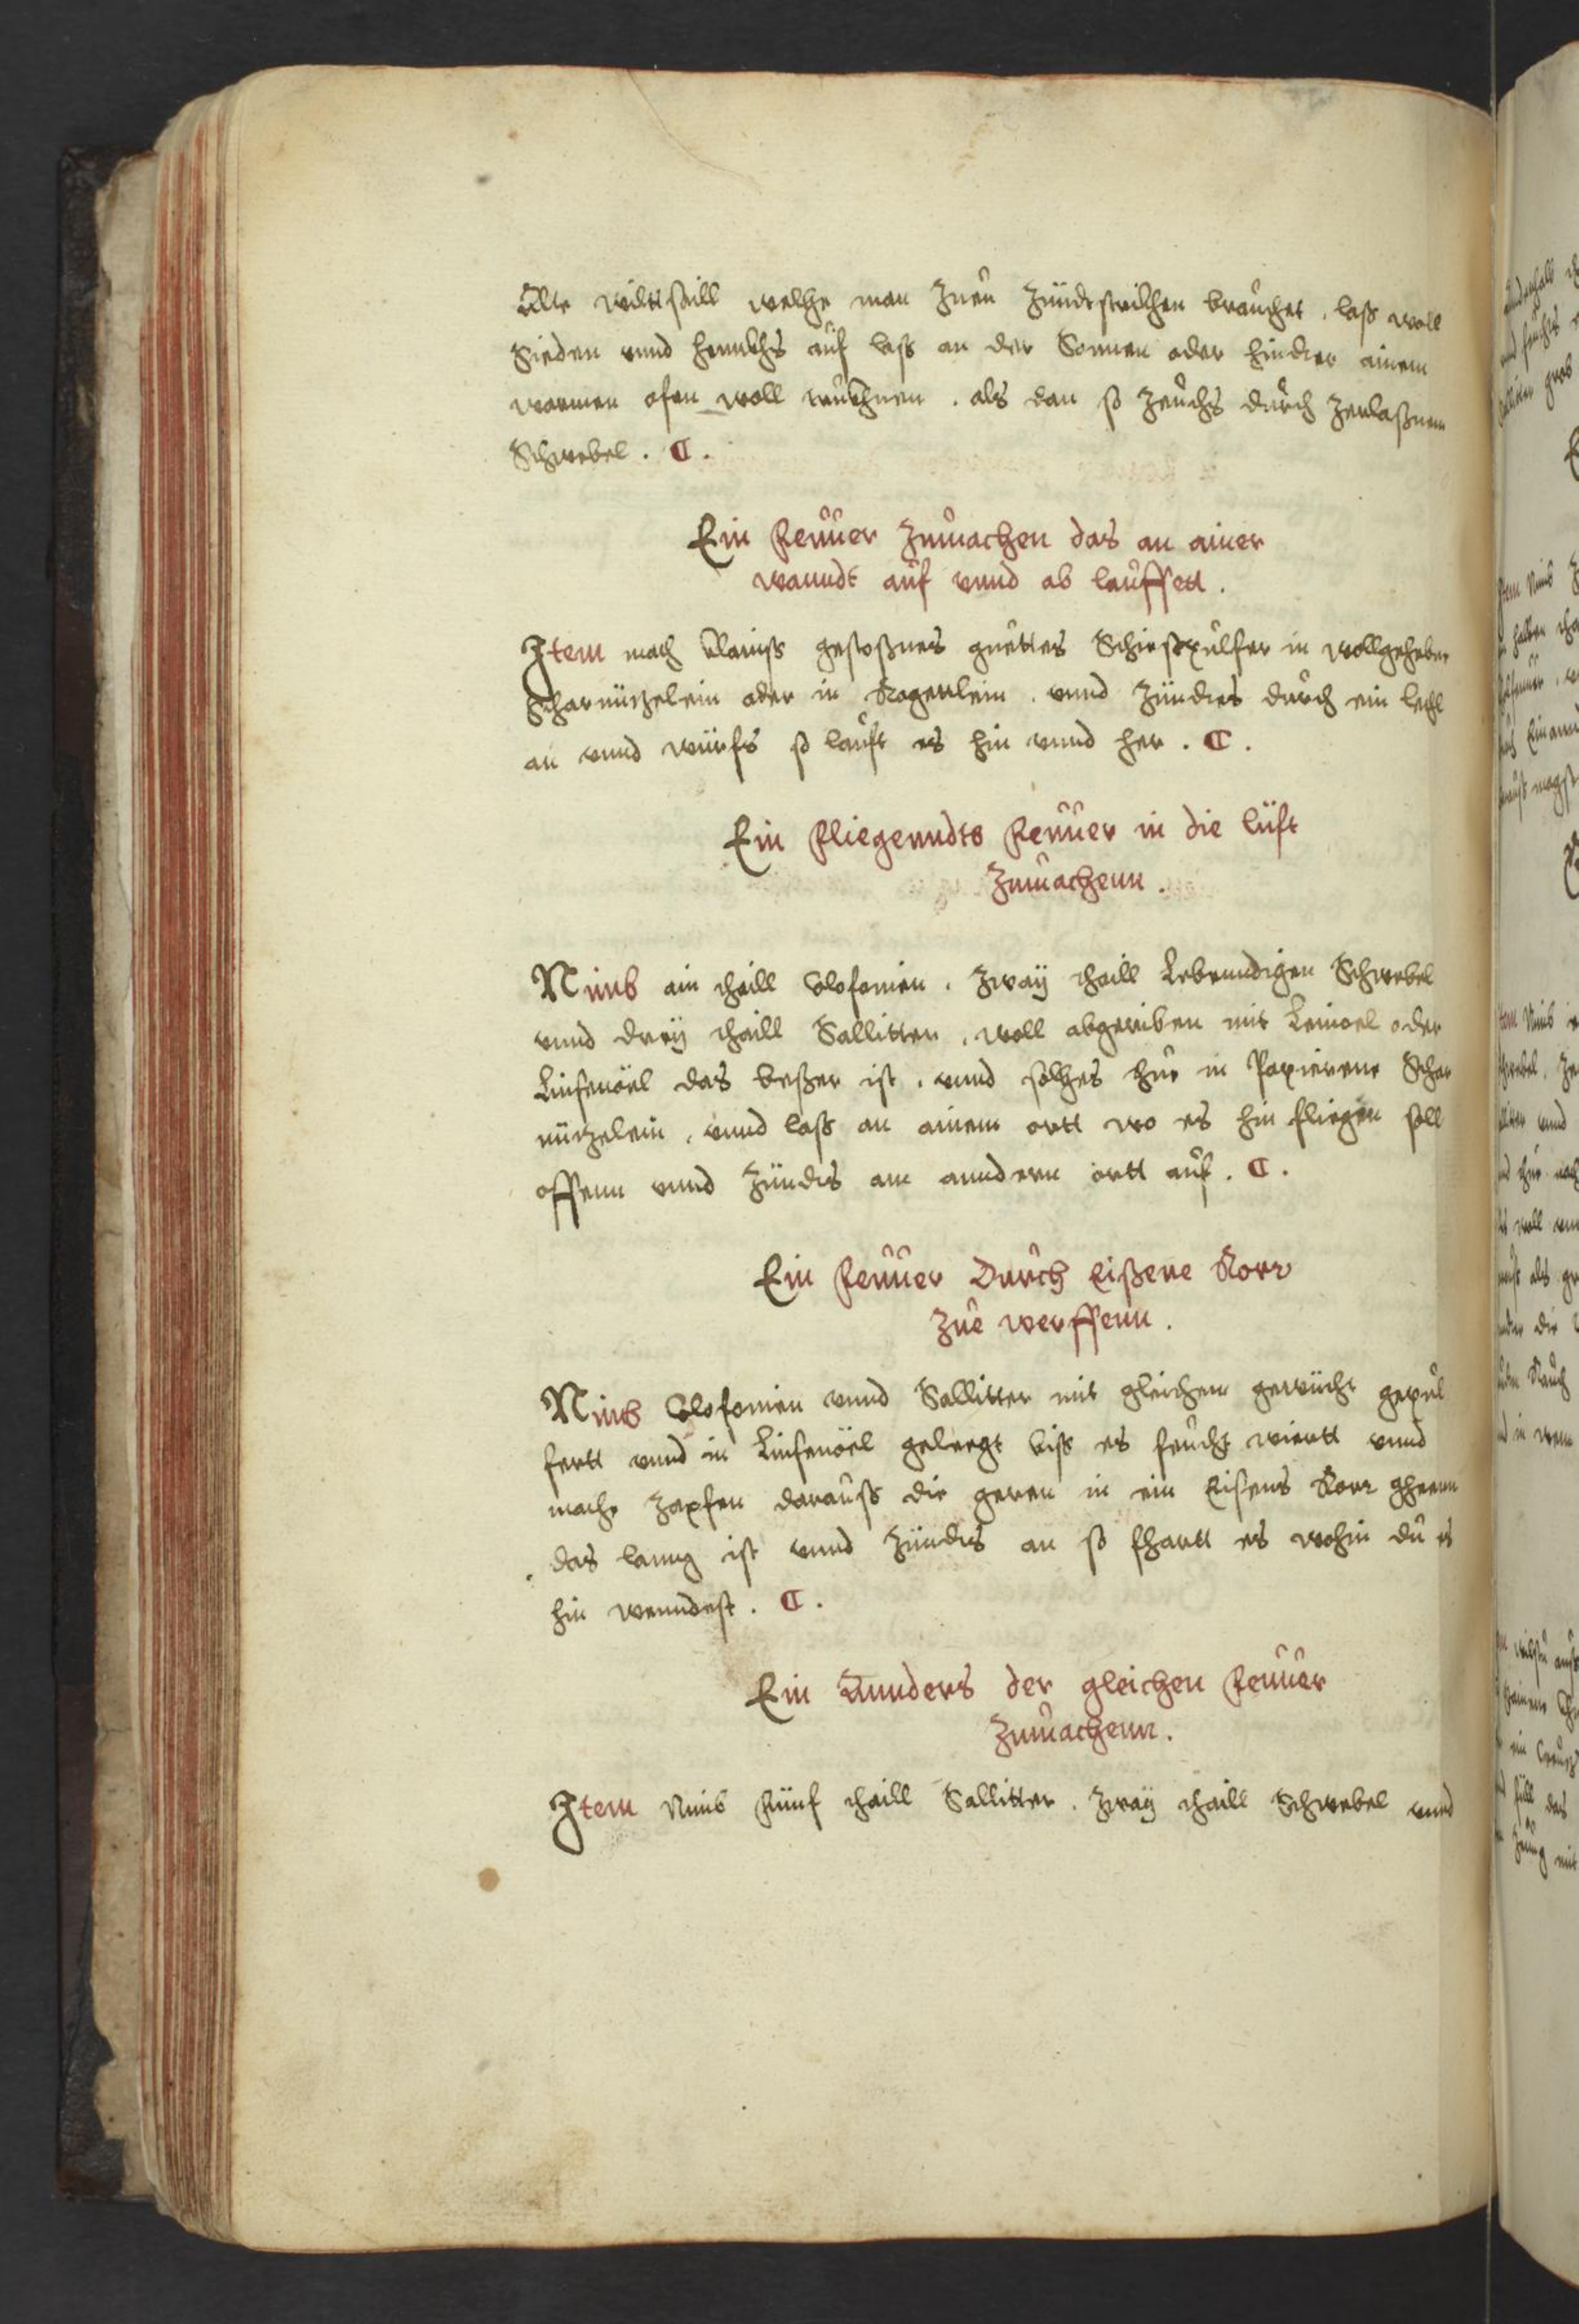 Alte wiltsaill welche man zuen zündtstrikhen brauchet, lass woll
Sieden vnnd hennkhs auf lass an der Sonnen oder hinder ainem
warmen ofen woll trükhnen. als dan so zeuchs durch zerlassnem
Schwebel. C.
Ein feuuer zumachen das an ainer
wanndt auf vnnd ab lauffett.
Item mach klainss gestossnes guettes Schiesspulfer in wollgehebe
Scharnützelein oder in Rogerrlein. vnnd zündtes durch ein lechl
an vnnd würfs so lauft es hin vnnd her. C.
Ein fliegenndts feuuer in die lüft
zumachenn.
Nimb ain thaill Colofonien. zway thaill Lebenndigen Schwebel
vnnd drey thaill Sallitter, woll abgeriben mit Leinoel oder
Linsenöel das besser ist. vnnd solches thue in Papierene Schar
nützelein, vnnd lass an ainem ortt wo es hin fliegen soll
offenn vnnd zündts am anndern ortt auf. C.
Ein feuuer Durch Eissene Rorr
zue werffenn.
Nimb Colofonien vnnd Sallitter mit gleichem gewücht gepul
fertt vnnd in Linsenöel gelegt biss es feucht wiertt vnnd
mache zapfen darauss die geren in ein Eisens Rorr gheenn
das lanng ist vnnd zündts an so fhartt es wohin du es
hin wenndest. C.
Ein Annders der gleichen feuuer
zumachenn.
Item Nimb fünf thaill Sallitter. zway thaill Schwebel vnnd